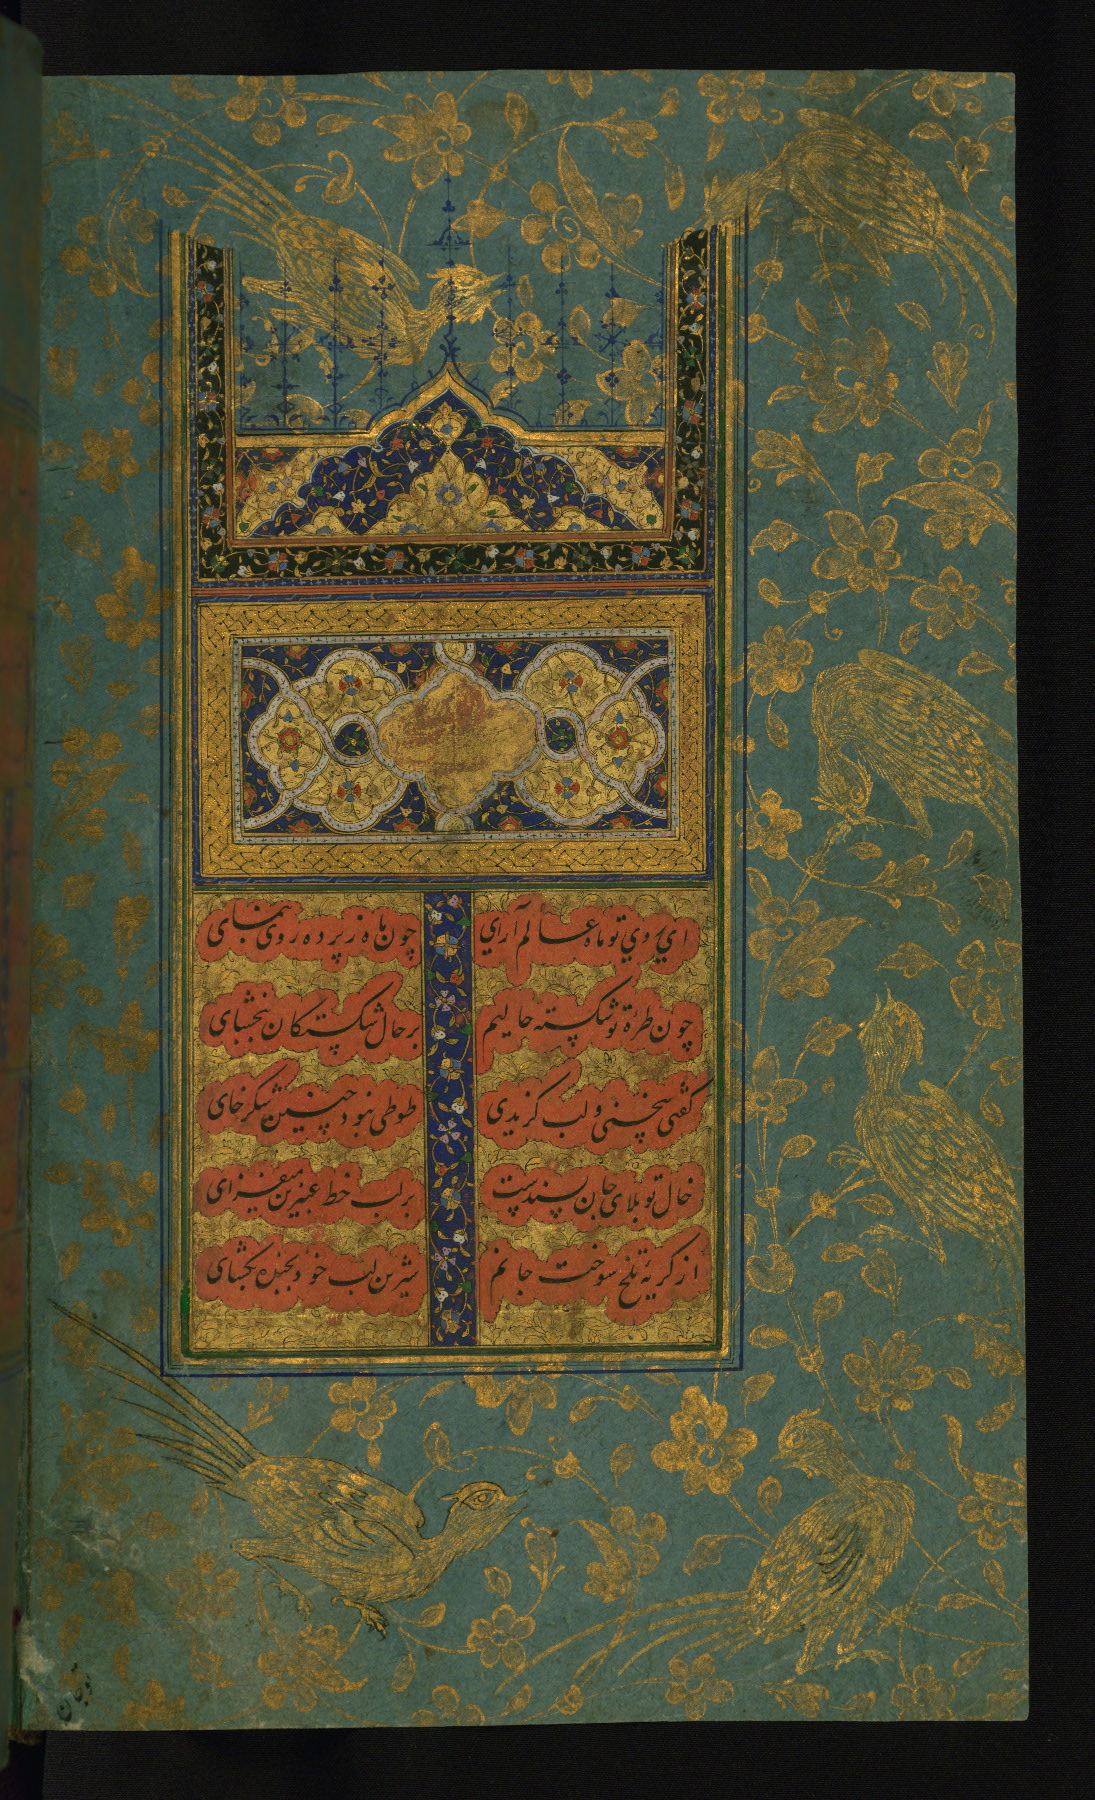 ای روی تو ماه عالم آرای چون ماه ز پرده روی بنمای
چون طرهٔ تو شکسته حالیم بر حال شکستگان ببخشای
گفتی سخنی و لب گزیدی طوطی نبود چنین شکرخای
خال تو بلای جان پسندست بر لب خط عنبرین میفزای
از گریهٔ تلخ سوخت جانم شیرین لب خود بخنده بگشای